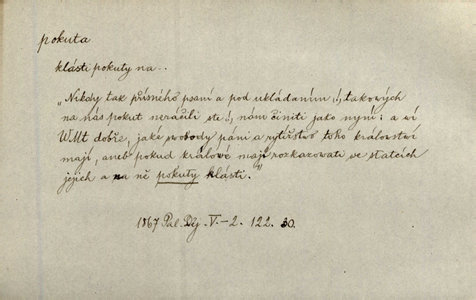 pokuta
klásti pokuty na...
„Nikdy tak přísného psaní a pod ukládaním (,) takových
na nás pokut neráčili ste (,) nám činiti jako nyní: a ví
WMt dobře, jaké svobody páni a rytířstvo toho království
mají, aneb pokud králové mají rozkazovati ve statcích
jejich a na ně pokuty klásti."
1867 Pal. Děj. V-2. 122. 30.